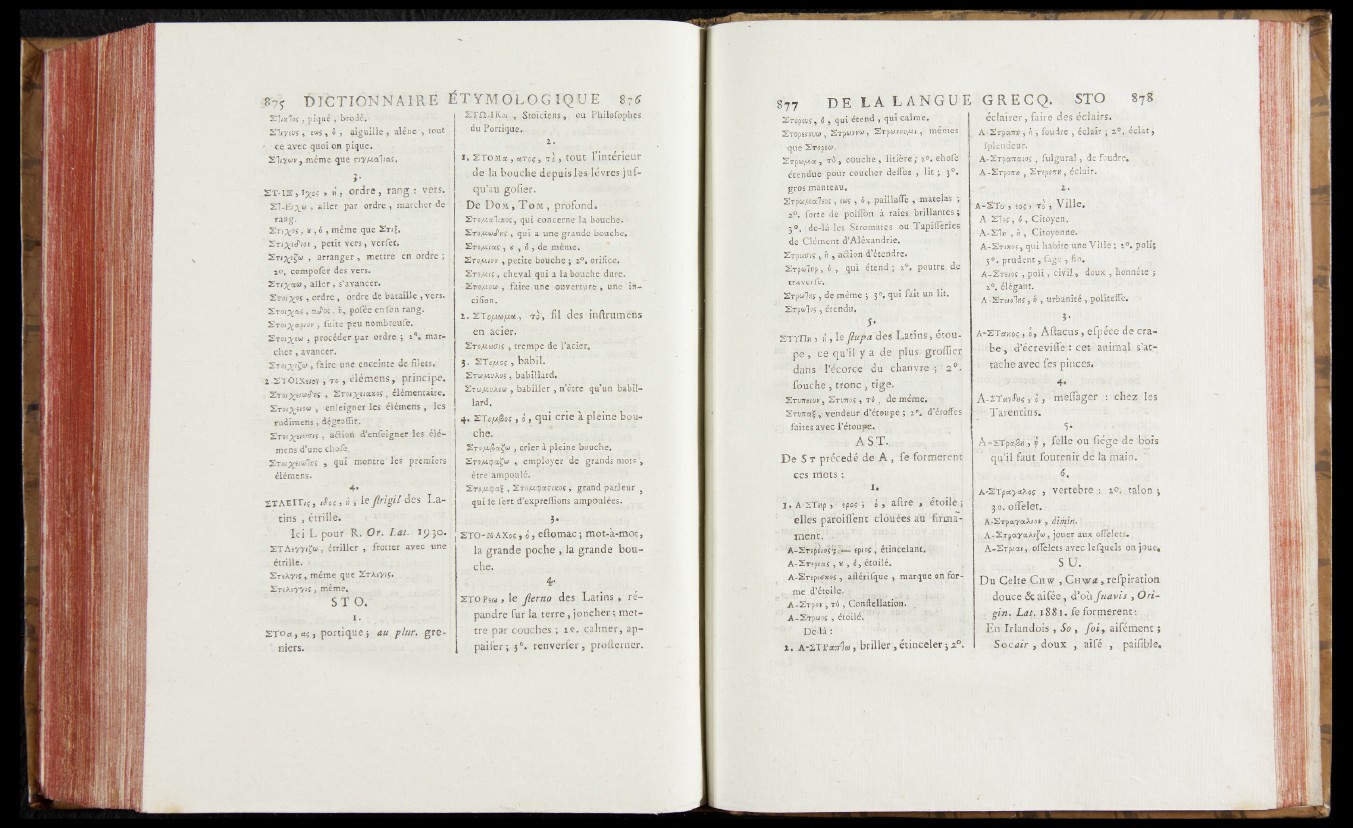 875 DICTIONNAIRE ÉTYMOLOGIQUE 876
Στικτος, piqué, brodé.
ce avec quoi on pique.
3.
ΣΤ-ΙΞ, ιχος, ἡ, ordre, rang : vers.
ΣΤ-Ειχω, aller par ordre, marcher de
rang.
Στιχος, ου, ὁ, même que Στιξ.
Στιχιδιον, petit vers, verset.
Στιχιζω, arranger, mettre en ordre ;
2º. composer des vers.
Στιχαω, aller, s'avancer.
Στοιχος, ordre, ordre de bataille, vers.
Στοιχας, αδος, ἡ, posée en son rang.
suite peu nombreuse.
Στοιχεω, procéder par ordre ; 2º. mar-
cher, avancer.
Στοιχιζω, faire une enceinte de filets.
2. ΣΤΟΙΧειον, το, élémens, principe.
Στοιχειωδης, Στοιχειακος, élémentaire.
Στοιχειοω, enseigner les élémens, les
rudimens, dégrossir.
Στοιχειωσις, action d'enseigner les élé-
mens d'une chose.
Στοιχειωτης, qui montre les premiers
élémens.
4.
ΣΤΛΕΓΓις, ιδος, ἡ, le strigil des La-
tins, étrille.
Ici L pour R. Or. Lat. 1930.
ΣΤΛεγγιζω, étriller, frotter avec une
étrille.
Στελγις, même que Στλεγις.
même.
STO.
1.
ΣΤΟα, ας, portique ; au plur. gre-
niers.
ΣΤΩ-ΙΚοι, Stoïciens, ou Philosophes
du Portique.
2.
1. ΣΤΟΜα, ατος, τὸ, tout l'intérieur
de la bouche depuis les lévres jus-
qu'au gosier.
De Dom, Tom, profond.
Στοματικος, qui concerne la bouche.
Στομωδης, qui a une grande bouche.
Στομιας, ου, ὁ, de même.
Στομιον, petite bouche ; 2º. orifice.
Στομις, cheval qui a la bouche dure.
Στομοω, faire une ouverture, une in-
cision.
2. ΣΤομωμα, τὸ, fil des instrumens
en acier.
Στομωσις, trempe de l'acier.
3. ΣΤομος, babil.
Στωμυλος, babillard.
Στωμυλεω, babiller, n'être qu'un babil-
lard.
4. ΣΤομφος, ὁ, qui crie à pleine bou-
che.
Στομφαζω, crier à pleine bouche.
Στομφαζω, employer de grands mots,
être ampoulé.
Στομφαξ, Στομφαστικος, grand parleur,
qui se sert d'expressions ampoulées.
3.
ΣΤΟ-ΜΑΧος, ὁ, estomac ; mot-à-mot,
la grande poche, la grande bou-
che.
4.
ΣΤΟΡεω, le sterno des Latins, ré-
pandre sur la terre, joncher ; met-
tre par couches ; 2º. calmer, ap-
paiser ; 3º. renverser, prosterner.
877 DE LA LANGUE GRECQ. STO 878
Στορευς, ὁ, qui étend, qui calme.
Στορεννυω, Στρωννυω, Στρωννυμι, mêmes
que Στορεω.
Στρωμα, τὸ, couche, litière ; 2º. chose
étendue pour coucher dessus, lit ; 3º.
gros manteau.
Στρωματευς, εως, ὁ, paillasse, matelas ;
2º. sorte de poisson à raies brillantes ;
3º. de-là les Stromates ou Tapisseries
de Clément d'Aléxandrie.
Στρωσις, ἡ, action d'étendre.
Στρωτηρ, ὁ, qui étend ; 2º. poutre de
traverse.
Στρωτης, de même ; 3º. qui fait un lit.
Στρωτος, étendu.
5.
ΣΤΥΠη, ἡ, le stupa des Latins, étou-
pe, ce qu'il y a de plus grossier
dans l'écorce du chanvre ; 2º.
souche, tronc, tige.
Στυπειον, Στυπος, τὸ, de même.
Στυπαξ, vendeur d'étoupe ; 2º. d'étoffes
faites avec l'étoupe.
AST.
De ST précedé de A, se formerent
ces mots :
1.
1. Α-ΣΤηρ, ερος, ὁ, astre, étoile ;
elles paroissent clouées au firma-
ment.
étincelant.
Α-Στεριας, ου, ὁ, étoilé.
Α-Στερισκος, astérisque, marque en for-
me d'étoile.
Α-Στρον, τὸ, Constellation.
Α-Στρωος, étoilé.
De-là :
2. Α-ΣΤΡαπτω, briller, étinceler ; 2º.
éclairer, faire des éclairs.
Α-Στραπη, ἡ, foudre, éclair ; 2º. éclat,
splendeur.
Α-Στραπαιος, fulgural, de foudre.
Α-Στροπη, Στεροπη, éclair.
2.
Α-ΣΤυ, εος, τὸ, Ville.
Α-Στος, ὁ, Citoyen.
Α-Στη, ἡ, Citoyenne.
Α-Στικος, qui habite une Ville ; 2º. poli ;
3º. prudent, sage, fin.
Α-Στειος, poli, civil, doux, honnête ;
2º. élégant.
Α-Στειοτης, ἡ, urbanité, politesse.
3.
Α-ΣΤακος, ὁ, Astacus, espéce de cra-
be, d'écrevisse : cet animal s'at-
tache avec ses pinces.
4.
Α-ΣΤανδης, ὁ, messager : chez les
Tarentins.
5.
Α-ΣΤραβη, ἡ, selle ou siége de bois
qu'il faut soutenir de la main.
6.
Α-ΣΤραγαλος, vertebre : 2º. talon ;
3º. osselet.
Α-Στραγαλιον, dimin.
Α-Στραγαλιζω, jouer aux osselets.
Α-Στριαι, osselets avec lesquels on joue.
SU.
Du Celte Chw, Chwa, respiration
douce & aisée, d'où suavis, Ori-
gin. Lat. 1881. se formerent :
En Irlandois, So, soi, aisément ;
Socair, doux, aisé, paisible.